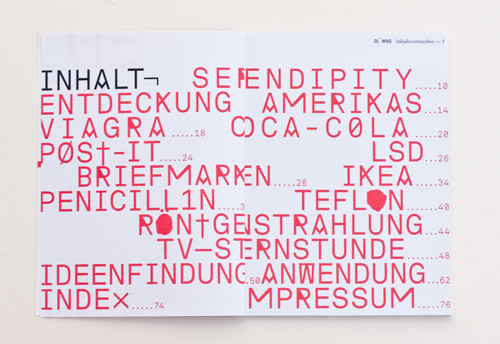 Inhaltsverzeichnis — 9
INHALT¬ SERENDIPITY.....10
ENTDECKUNG AMERIKAS....14
VIAGRA.....18 COCA-C0LA.....20
PØS†-IT.....24 LSD....26
BRIEFMARKEN....28 IKEA....34
PENICILL1N.....3 TEFLON.....40
RÖN†GENSTRAHLUNG....44
TV—STERNSTUNDE......48
IDEENFINDUNG.50 ANWENDUNG..62
INDEX.....74 IMPRESSUM.....76